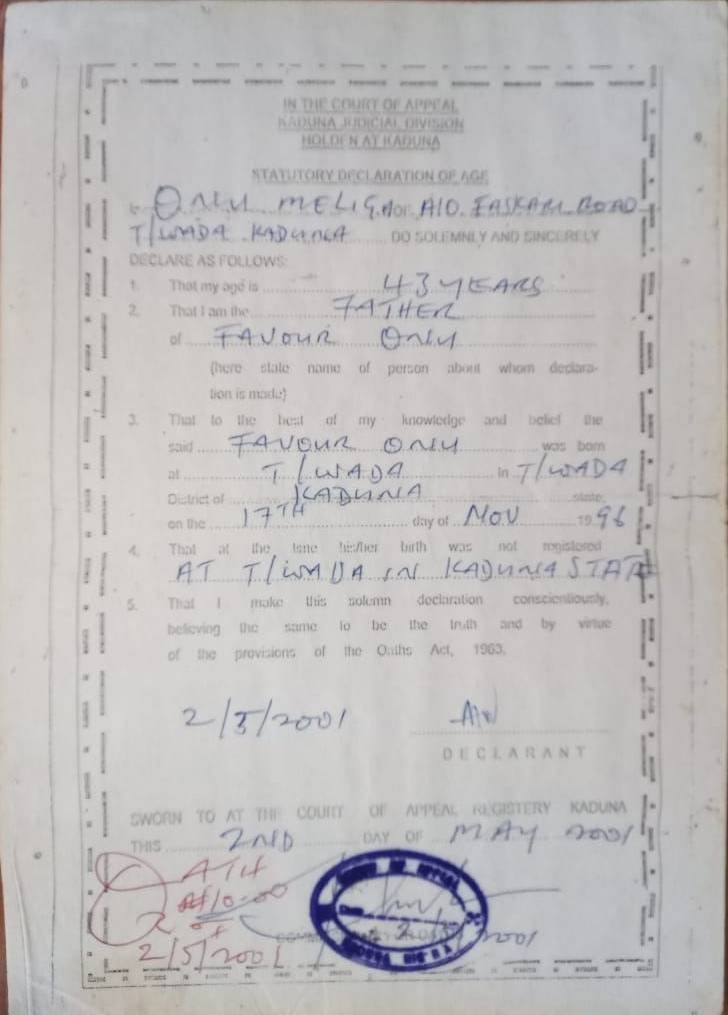 IN THE COURT OF APPEAL
KADUNA JUDICIAL DIVISION
HOLDEN AT KADUNA
STATUTORY DECLARATION OF AGE
I, ONLY MELIGA of A10
ROAD
T/WADA KADUNA DO SOLEMNLY AND SINCERELY
DECLARE AS FOLLOWS:
1. That my age is 43 YEARS
2. That I am the FATHER
of FAVOUR ONLY
(here state name of person about whom declara-
tion is made)
3. That to the best of my knowledge and belief the
said FAVOUR ONLY was born
at T/WADA in T/WADA
District of KADUNA state
on the 17TH day of NOV 1996
4. That at the time his/her birth was not registered
AT T/WADA IN KADUNA STATE
5. That I make this solemn declaration conscientiously,
believing the same to be the truth and by virtue
of the provisions of the Oaths Act, 1963.
2/5/2001
DECLARANT
SWORN TO AT THE COURT OF APPEAL REGISTERY KADUNA
THIS 2ND DAY OF MAY 2001
COURT OF APPEAL
2/5/2001